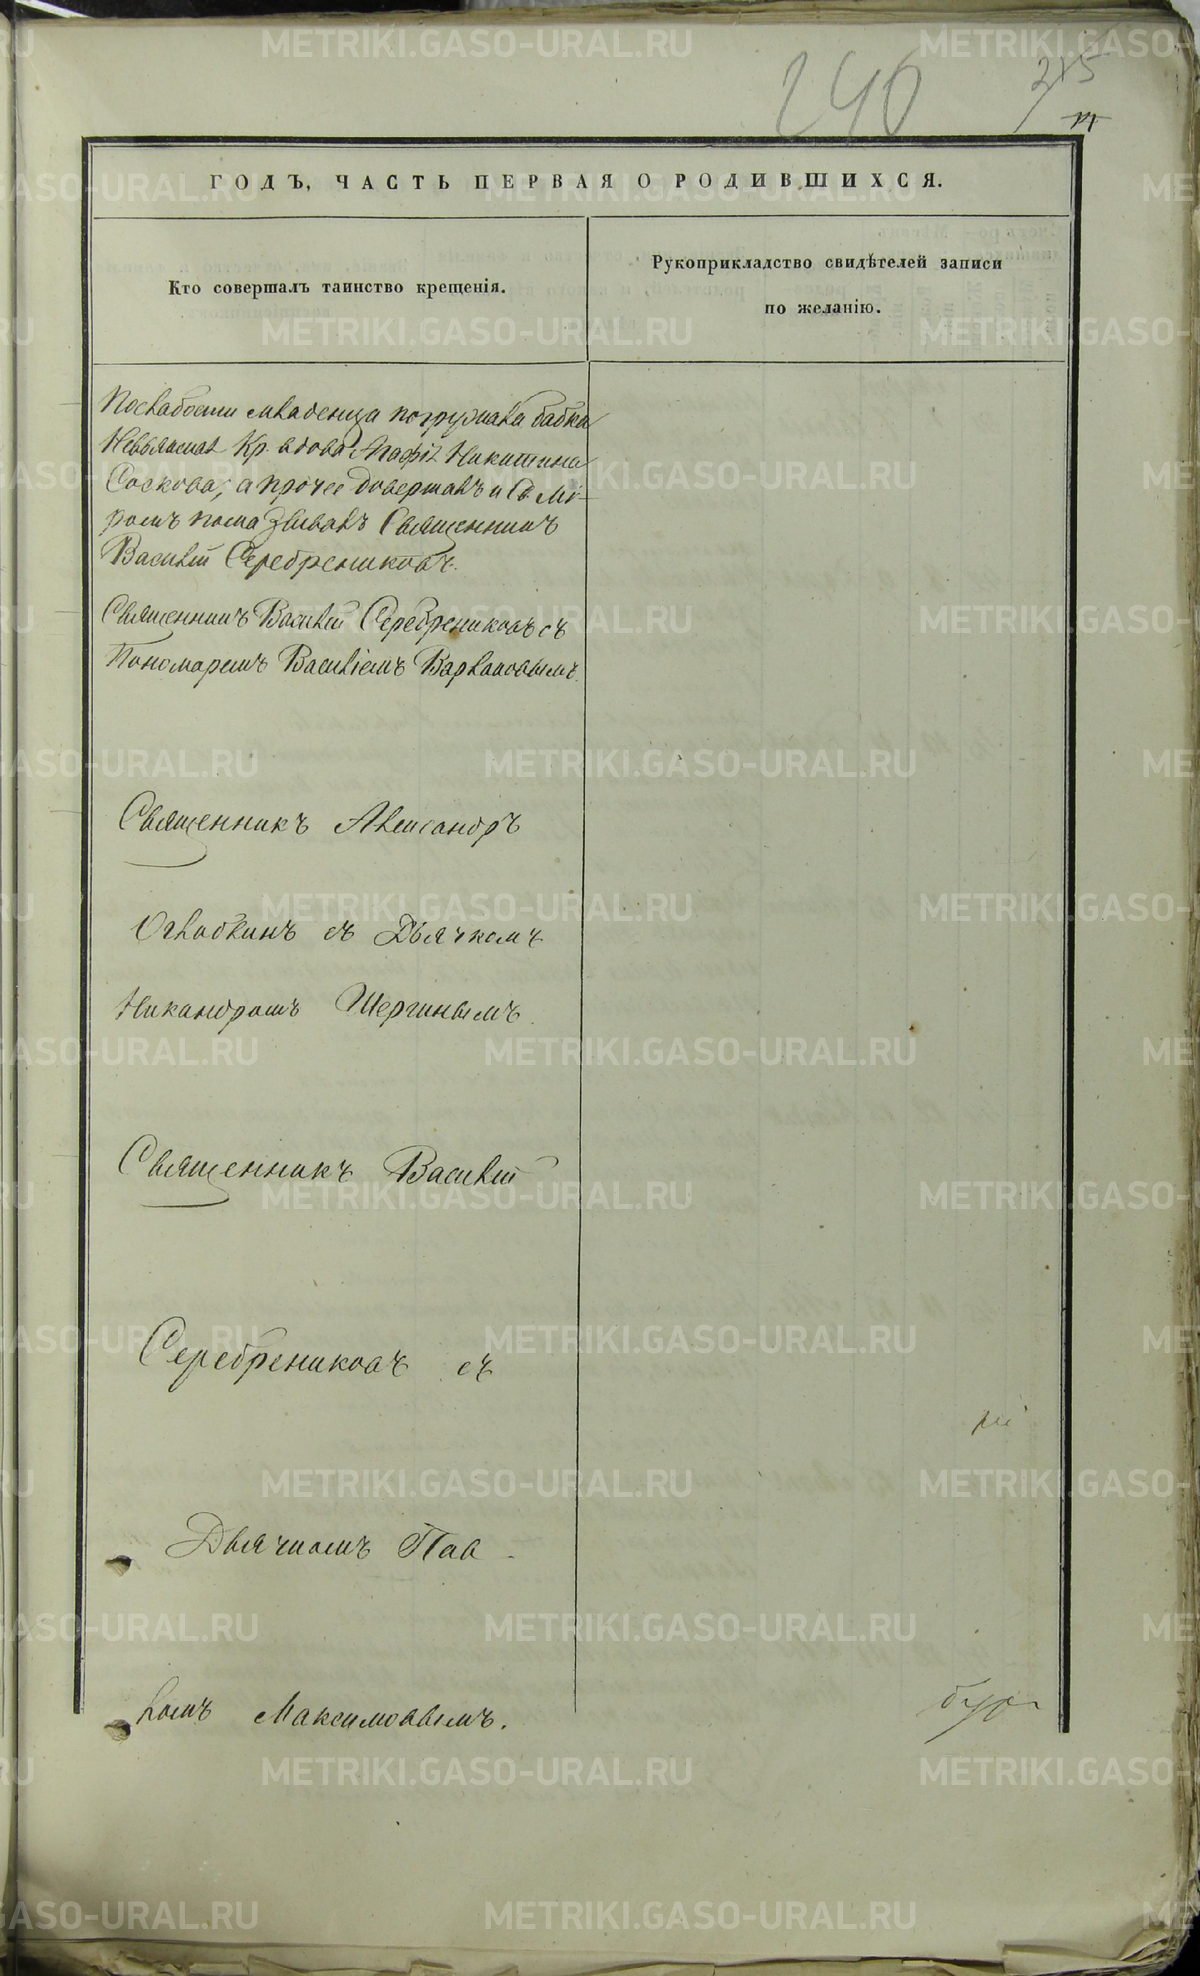 240
215
ГОДЪ, ЧАСТЬ ПЕРВАЯ О РОДИВШИХСЯ.
Кто совершалъ таинство крещенія.
Рукоприкладство свидѣтелей записи
по желанію.
По слабости младенца погружала бабка
Кр. вдова Никитина
Соскова, а прочее довершалъ и Св. Мѵ-
ромъ помазывалъ Священникъ
Василій Серебрениковъ.
Священникъ Василій Серебрениковъ съ
Пономаремъ Василіемъ Варлаковымъ.
Священникъ Александръ
Оглоблинъ съ Дьячкомъ
Никандромъ Шергинымъ.
Священникъ Василій
Серебрениковъ съ
Дьячкомъ Пав-
ломъ Максимовымъ.
METRIKI.GASO-URAL.RU